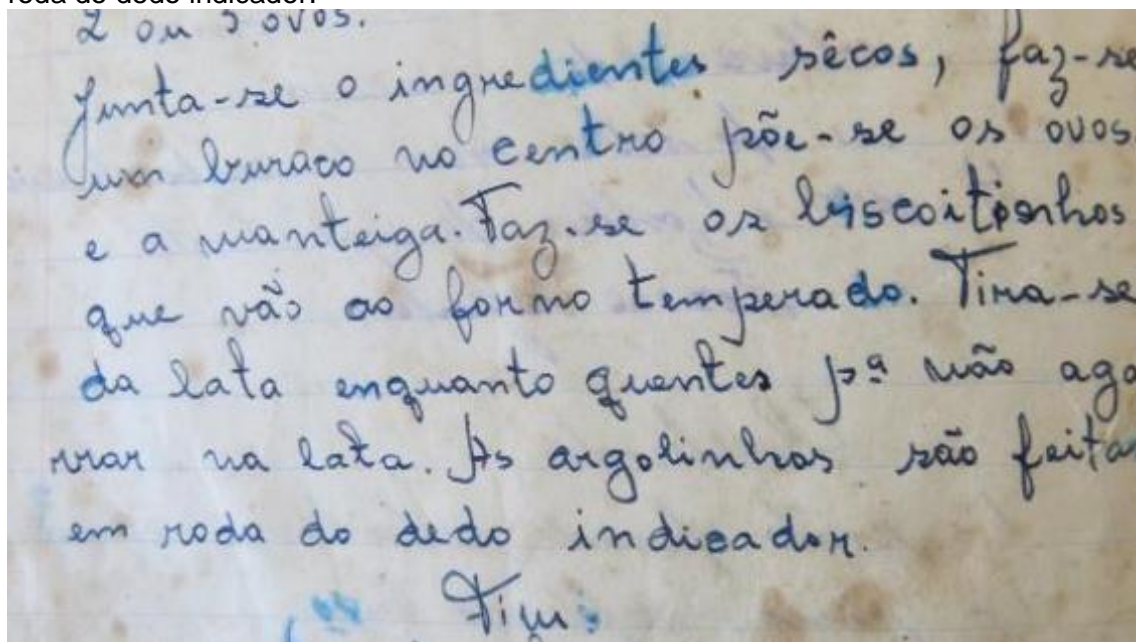 roda do dedo indicador.
2 ou 3 ovos.
Junta-se o ingredientes sêcos, faz-se
um buraco no centro põe-se os ovos
e a manteiga. Faz-se os biscoitinhos
que vão ao forno temperado. Tira-se
da lata enquanto quentes pª não aga
rrar na lata. As argolinhas são feitas
em roda do dedo indicador.
Fim.